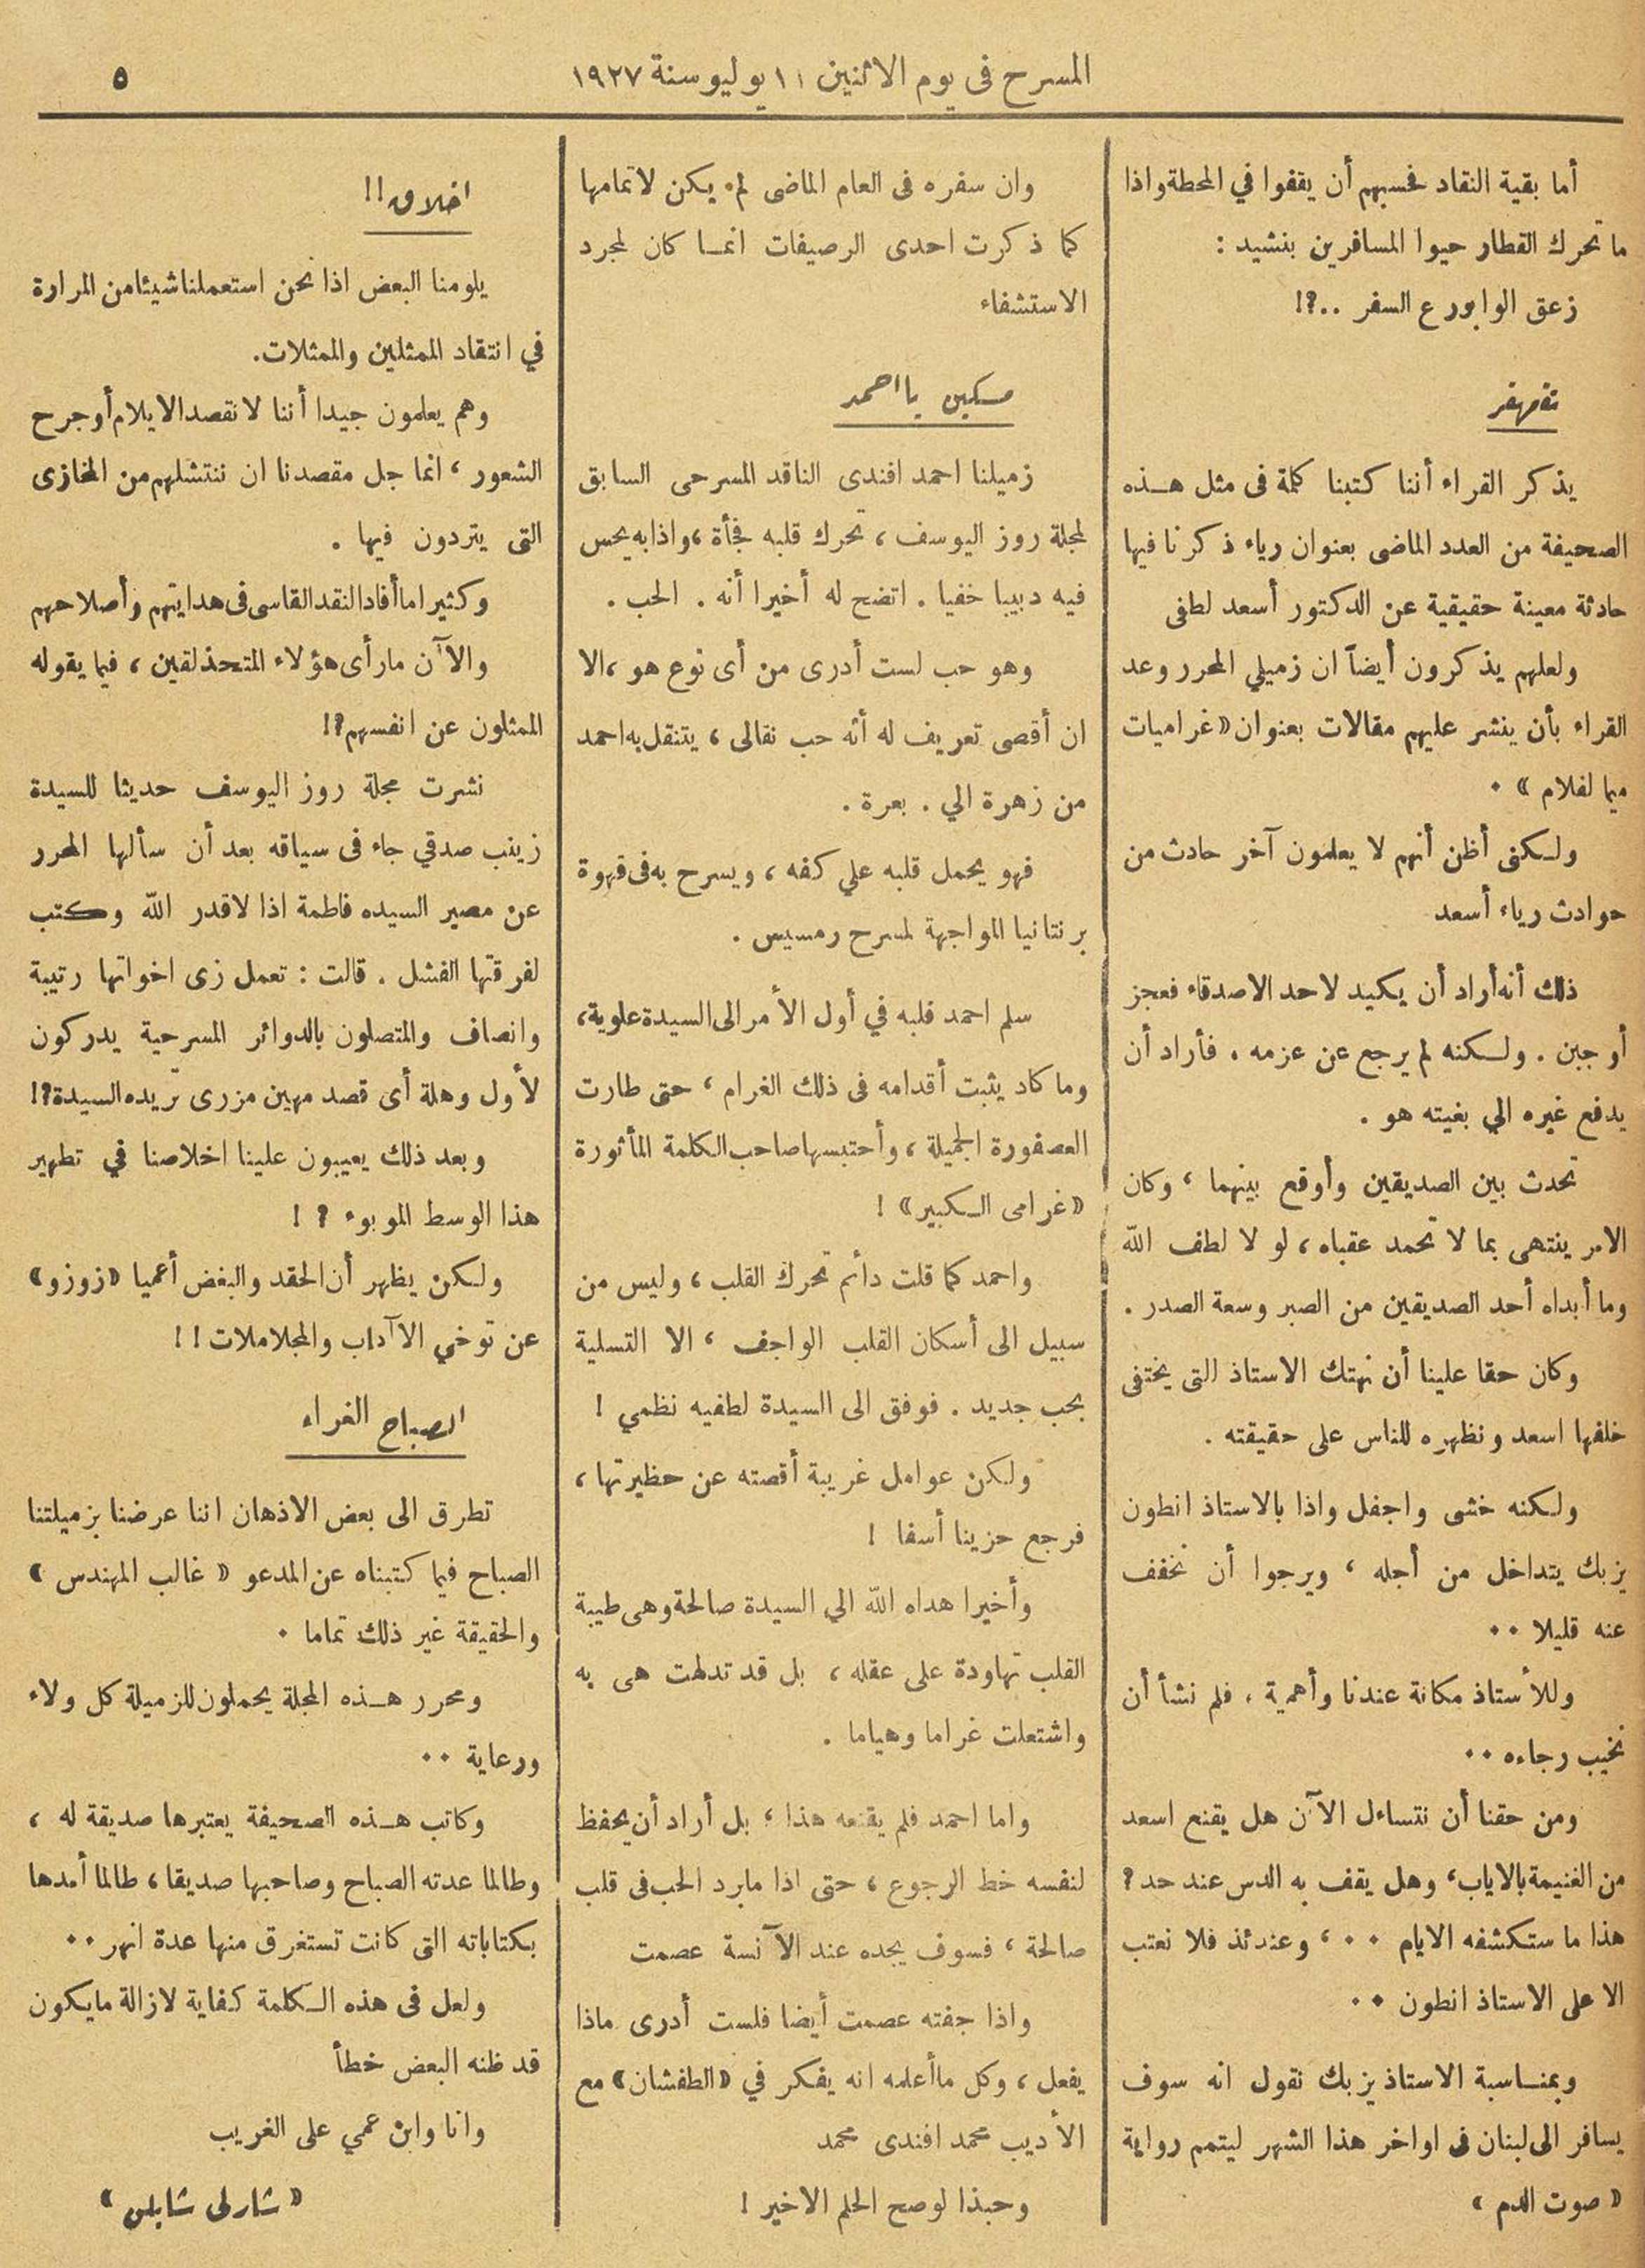 المسرح فى يوم الاثنين ١١ يوليو سنة ١٩٢٧
٥
أما بقية النقاد فحسبهم أن يقفوا في المحطة واذا
ما تحرك القطار حيوا المسافرين بنشيد :
زعق الوابور ع السفر ..؟!
تقهقر
يذكر القراء أننا كتبنا كلمة فى مثل هـذه
الصحيفة من العدد الماضى بعنوان رياء ذكرنا فيها
حادثة معينة حقيقية عن الدكتور أسعد لطفى
ولعلهم يذكرون أيضاً ان زميلي المحرر وعد
القراء بأن ينشر عليهم مقالات بعنوان «غراميات
ميما لفلام » .
ولـكنى أظن أنهم لا يعلمون آخر حادث من
حوادث رياء أسعد
ذلك أنه أراد أن يكيد لاحد الاصدقاء فعجز
أو جبن . ولـكنه لم يرجع عن عزمه . فأراد أن
يدفع غيره الي بغيته هو .
تحدث بين الصديقين وأوقع بينهما ، وكان
الامر ينتهى بما لا تحمد عقباه ، لو لا لطف الله
وما أبداه أحد الصديقين من الصبر وسعة الصدر .
وكان حقا علينا أن نهتك الاستاذ التى يختفى
خلفها اسعد ونظهره للناس على حقيقته .
ولـكنه خشى واجفل واذا بالاستاذ انطون
يزبك يتداخل من أجله ، ويرجوا أن نخفف
عنه قليلا ..
وللأستاذ مكانة عندنا وأهمية ، فلم نشأ أن
نخيب رجاءه ..
ومن حقنا أن نتساءل الآن هل يقنع اسعد
من الغنيمة بالاياب، وهل يقف به الدس عند حد ؟
هذا ما ستكشفه الايام .. ، وعندئذ فلا نعتب
الا على الاستاذ انطون ..
وبمنـاسبة الاستاذ يزبك نقول انه سوف
يسافر الى لبنان فى اواخر هذا الشهر ليتمم رواية
« صوت الدم »
وان سفره فى العام الماضى لم يكن لاتمامها
كما ذكرت احدى الرصيفات انمـا كان لمجرد
الاستشفاء
مسكين يا احمد
زميلنا احمد افندى الناقد المسرحى السابق
لمجلة روز اليوسف ، تحرك قلبه فجأة ، واذا به يحس
فيه دبيبا خفيا . اتضح له أخيرا أنه . الحب .
وهو حب لست أدرى من أى نوع هو ، الا
ان أقصى تعريف له أنه حب نقالى ، يتنقل به احمد
من زهرة الي . بعرة .
فهو يحمل قلبه علي كفه ، ويسرح به فى قهوة
برنتانيا المواجهة لمسرح رمسيس .
سلم احمد قلبه في أول الأمر الى السيدة علوية،
وما كاد يثبت أقدامه فى ذلك الغرام ، حتى طارت
العصفورة الجميلة ، وأحتبسها صاحب الكلمة المأثورة
«غرامى الـكبير» !
واحمد كما قلت دأئم تحرك القلب ، وليس من
سبيل الى أسكان القلب الواجف ، الا التسلية
بحب جديد . فوفق الى السيدة لطفيه نظمي !
ولـكن عوامل غريبة أقصته عن حظيرتها ،
فرجع حزينا أسفا !
وأخيرا هداه الله الي السيدة صالحة وهى طيبة
القلب تهاودة على عقله ، بل قد تدلهت هى به
واشتعلت غراما وهياما .
واما احمد فلم يقنعه هذا ، بل أراد أن يحفظ
لنفسه خط الرجوع ، حتى اذا مابرد الحب فى قلب
صالحة ، فسوف يجده عند الآنسة عصمت
واذا جفته عصمت أيضا فلست أدرى ماذا
يفعل ، وكل ما أعلمه انه يفكر في «الطفشان» مع
الأديب محمد افندى محمد
وحبذا لوصح الحلم الاخير !
اخلاق !!
يلومنا البعض اذا نحن استعملنا شيئا من المرارة
في انتقاد الممثلين والممثلات.
وهم يعلمون جيدا أننا لا نقصد الايلام أو جرح
الشعور ، انما جل مقصدنا ان ننتشلهم من المخازى
التى يتردون فيها .
وكثيرا ما أفاد النقد القاسى فى هدايتهم وأصلاحهم
والآن مارأى هؤلاء المتحذلقين ، فيما يقوله
الممثلون عن انفسهم؟!
نشرت مجلة روز اليوسف حديثا للسيدة
زينب صدقي جاء فى سياقه بعد أن سألها المحرر
عن مصير السيده فاطمة اذا لاقدر الله وكتب
لفرقتها الفشل . قالت : تعمل زى اخواتها رتيبة
وانصاف والمتصلون بالدوائر المسرحية يدركون
لأول وهلة أى قصد مهين مزرى تريده السيدة؟!
وبعد ذلك يعيبون علينا اخلاصنا في تطهير
هذا الوسط الموبوء ؟ !
ولـكن يظهر أن الحقد والبغض أعميا «زوزو»
عن توخي الآداب والمجلاملات ! !
الصباح الغراء
تطرق الى بعض الاذهان اننا عرضنا بزميلتنا
الصباح فيما كتبناه عن المدعو « غالب المهندس »
والحقيقة غير ذلك تماما .
ومحرر هـذه المجلة يحملون للزميلة كل ولاء
ورعاية ..
وكاتب هـذه الصحيفة يعتبرها صديقة له ،
وطالما عدته الصباح وصاحبها صديقا ، طالما أمدها
بكتاباته التى كانت تستغرق منها عدة انهر ..
ولعل فى هذه الـكلمة كفاية لازالة مايكون
قد ظنه البعض خطأ
وانا وابن عمي على الغريب
« شارلى شابلن »